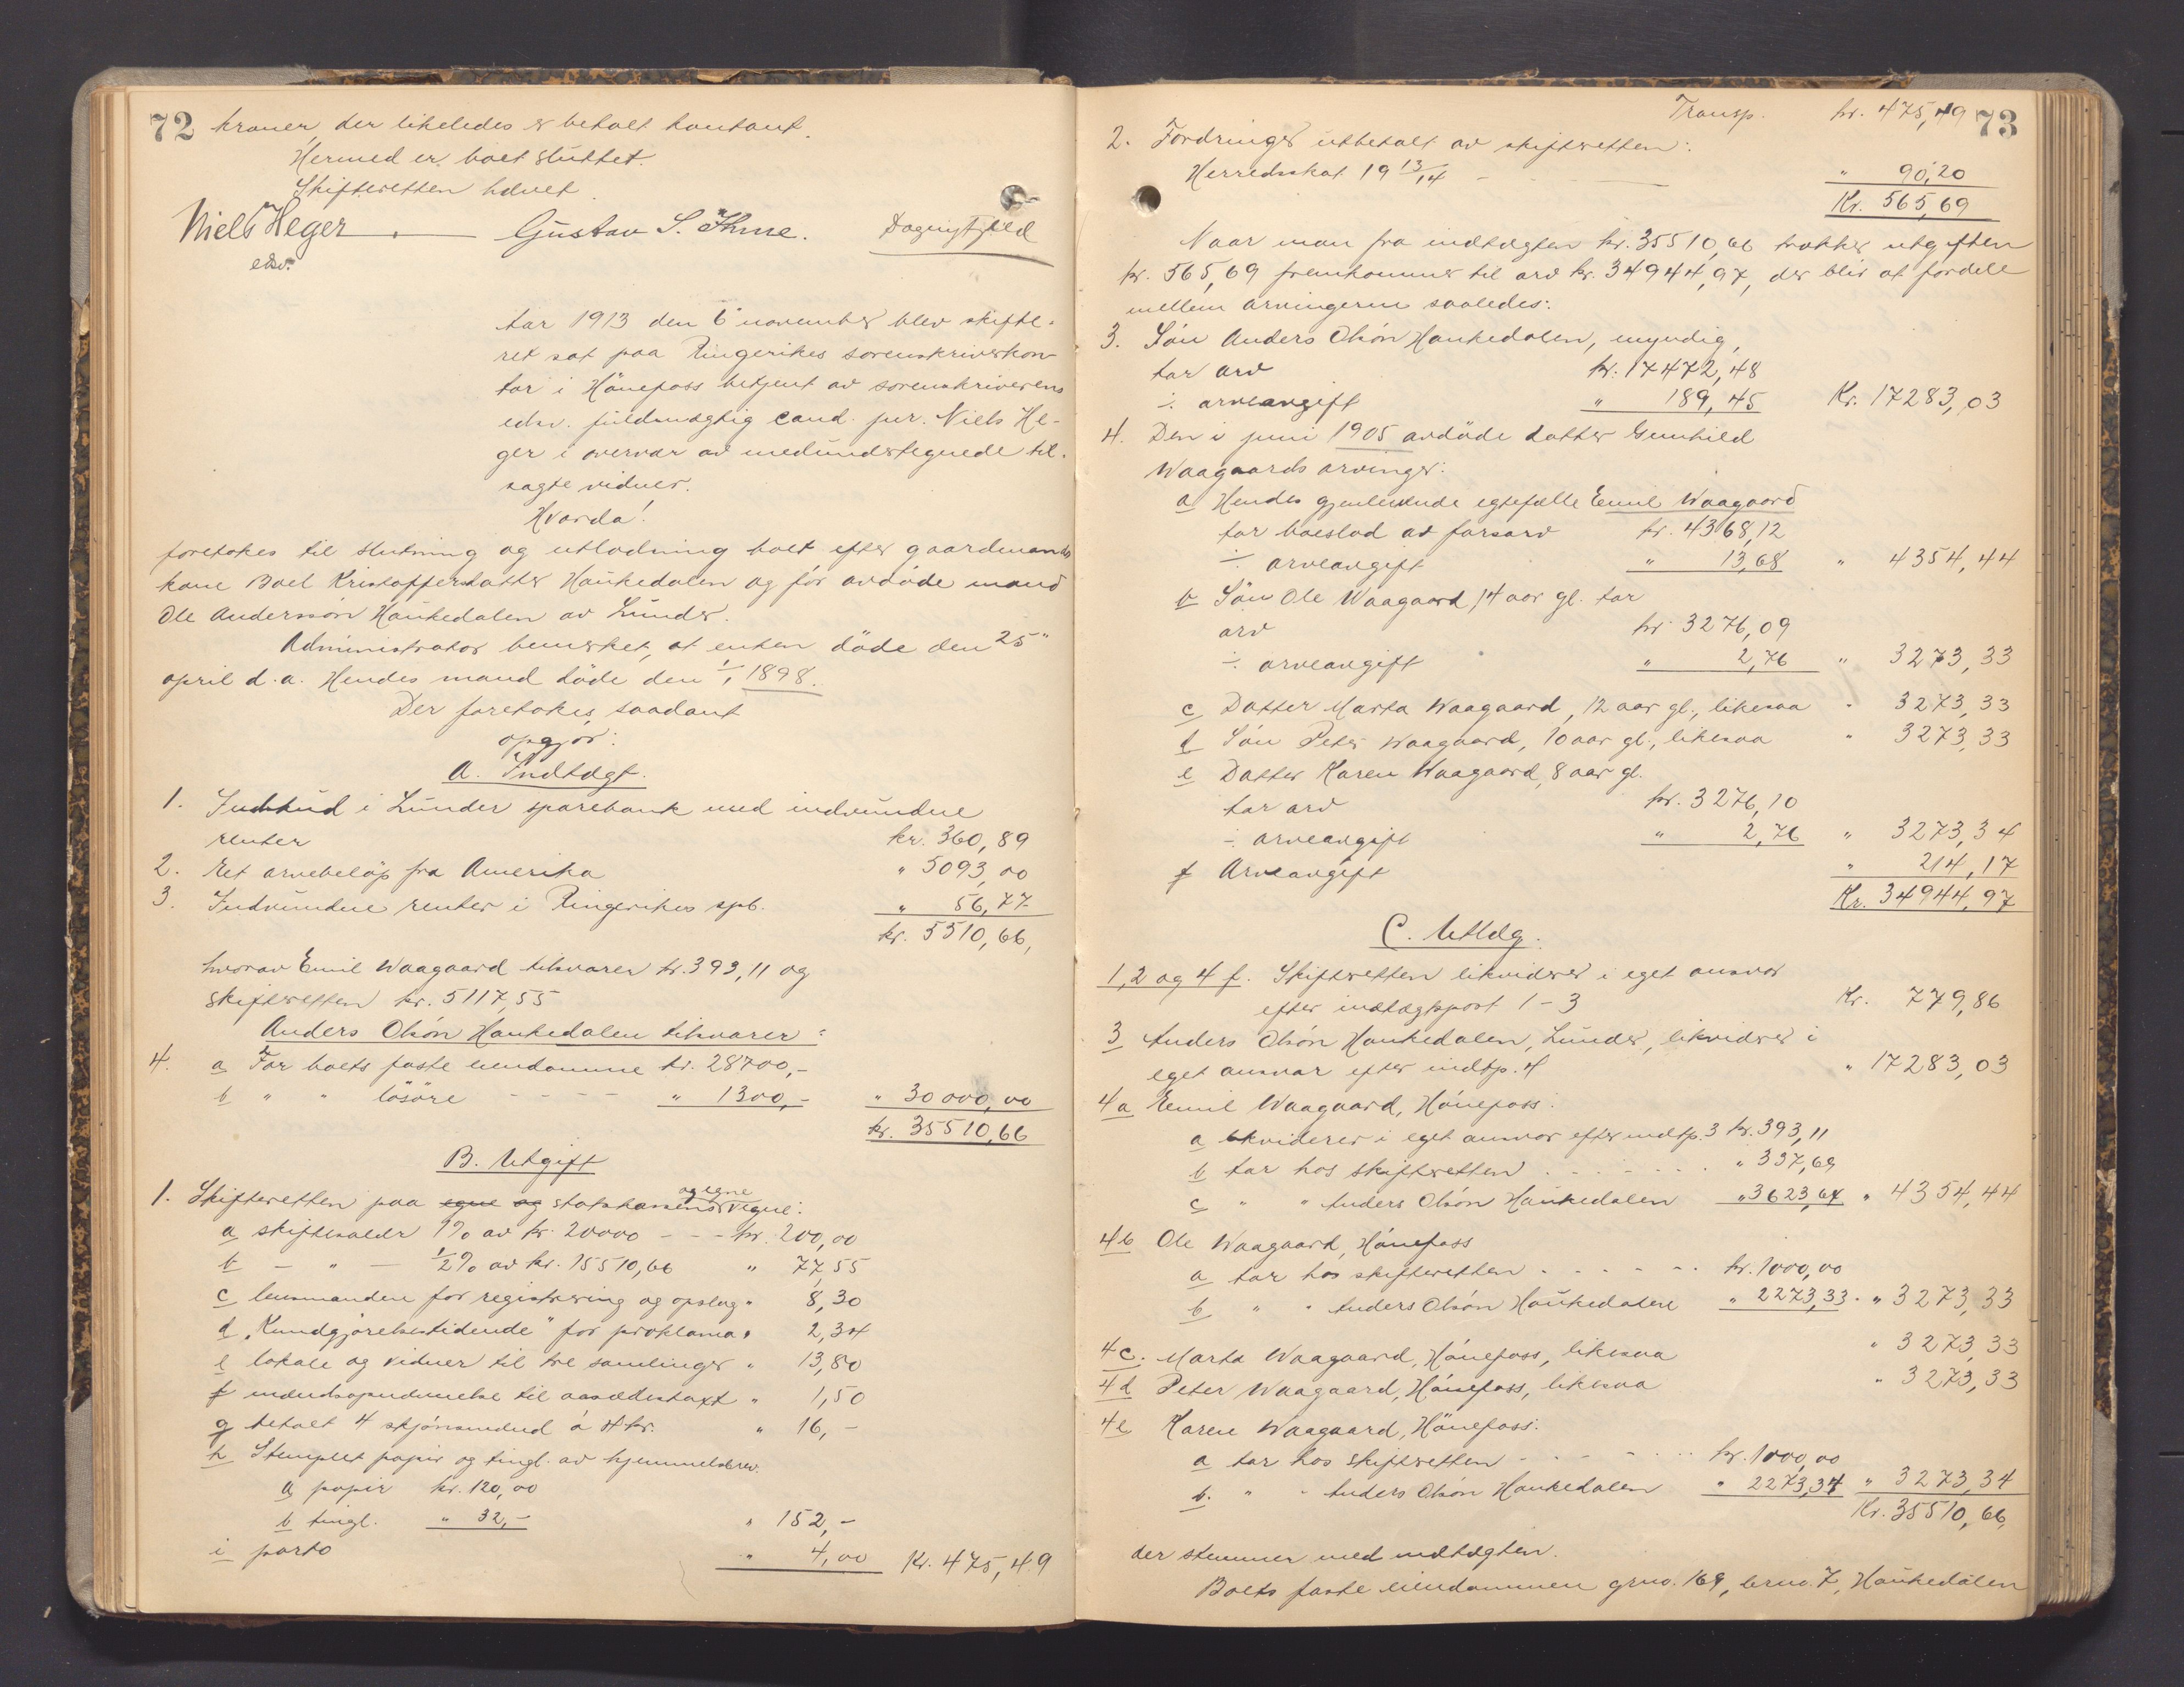 72 kroner, der likeledes er betalt kontant.
Hermed er boet sluttet.
Skifteretten hævet.
Niels Heger Gustav S. Ihme.
edsv.
Aar 1913 den 6 november blev skifte-
ret sat paa Ringerikes sorenskriverkon-
tor i Hönefoss betjent av sorenskriverens
edsv. fuldmægtig cand. jur. Niels He-
ger i overvær av medundertegnede til-
sagte vidner.
Hvorda!
foretokes til slutning og utlodning boet efter gaardmands
kone Boel Kristoffersdatter Haukedalen og før avdöde mand
Ole Anderssön Haukedalen av Lunder.
Administrator bemerket, at enken döde den 25"
april d.a. Hendes mand döde den 1/1 1898.
Der foretokes saadant
opgjör:
A. Indtægt.
1. Indskud i Lunder sparebank med indvundne
renter kr. 360,89
2. Et arvebelöp fra Amerika " 5093,00
3. Indvundne renter i Ringerikes spb. " 56,77
kr. 5510,66,
hvorav Emil Waagaard tilsvarer kr. 393,11 og
skifteretten kr. 5117,55
Anders Olsön Haukedalen tilsvarer:
4. a For boets faste eiendomme kr. 28700,-
b " " lösöre - - - - " 1300,- " 30000,00
kr. 35510,66
B. Utgift
og egne
1. Skifteretten paa egne og statskassens vegne:
a skiftesalær 1% av kr. 20000 - - - kr. 200,00
b - " - 1/2% av kr. 15510,66 " 77,55
c lensmanden for registrering og opslag " 8,30
d „Kundgjörelsestidende" for proklama " 2,34
e lokale og vidner til tre samlinger " 13,80
f mændsopnævnelse til aasædestaxt " 1,50
g betalt 4 skjönsmænd á 4 kr. " 16,-
h Stemplet papir og tingl. av hjemmelsbrev.
a papir kr. 120,00
b tingl. " 32,- " 152,-
i porto " 4,00 Kr. 475,49
Transp. kr. 475,49 73
2. Fordringer utbetalt av skifteretten:
Herredsskat 19 13/14 - - " 90,20
Kr. 565,69
Naar man fra indtægten kr. 35510,66 trækker utgiften
kr. 565,69 fremkommer til arv kr. 34944,97, der blir at fordele
mellem arvingerne saaledes:
3. Sön Anders Olsön Haukedalen, myndig,
tar arv kr. 17472,48
÷ arveavgift " 189,45 Kr. 17283,03
4. Den i juni 1905 avdöde datter Gunhild
Waagaards arvinger:
a Hendes gjenlevende egtefælle Emil Waagaard
tar boeslod av farsarv kr. 4368,12
÷ arveavgift " 13,68 " 4354,44
b Sön Ole Waagaard, 14 aar gl. tar
arv kr. 3276,09
÷ arveavgift " 2,76 " 3273,33
c Datter Marta Waagaard, 12 aar gl., likesaa " 3273,33
d Sön Peter Waagaard, 10 aar gl., likesaa " 3273,33
e Datter Karen Waagaard, 8 aar gl.
tar arv kr. 3276,10
÷ arveavgift " 2,76 " 3273,34
f Arveavgift " 214,17
Kr. 34944,97
C. Utlæg.
1, 2 og 4 f. Skifteretten likviderer i eget ansvar
efter indtægtspost 1-3 Kr. 779,86
3 Anders Olsön Haukedalen, Lunder, likviderer i
eget ansvar efter indtp. 4 " 17283,03
4a Emil Waagaard, Hönefoss:
a likviderer i eget ansvar efter indtp. 3 kr. 393,11
b tar hos skifteretten - - - - " 337,69
c " " Anders Olsön Haukedalen " 3623,64 " 4354,44
4b Ole Waagaard, Hönefoss
a tar hos skifteretten - - - - kr. 1000,00
b " " Anders Olsön Haukedalen " 2273,33 " 3273,33
4c. Marta Waagaard, Hönefoss, likesaa " 3273,33
4d Peter Waagaard, Hönefoss, likesaa " 3273,33
4e Karen Waagaard, Hönefoss:
a tar hos skifteretten - - - - kr. 1000,00
b. " " Anders Olsön Haukedalen " 2273,34 " 3273,34
Kr. 35510,66,
der stemmer med indtægten.
Boets faste eiendommen grno. 169, brno. 7, Haukedalen